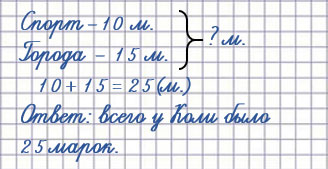 Спорт – 10 м.
? м.
Города – 15 м.
10 + 15 = 25 (м.)
Ответ: всего у Коли было
25 марок.